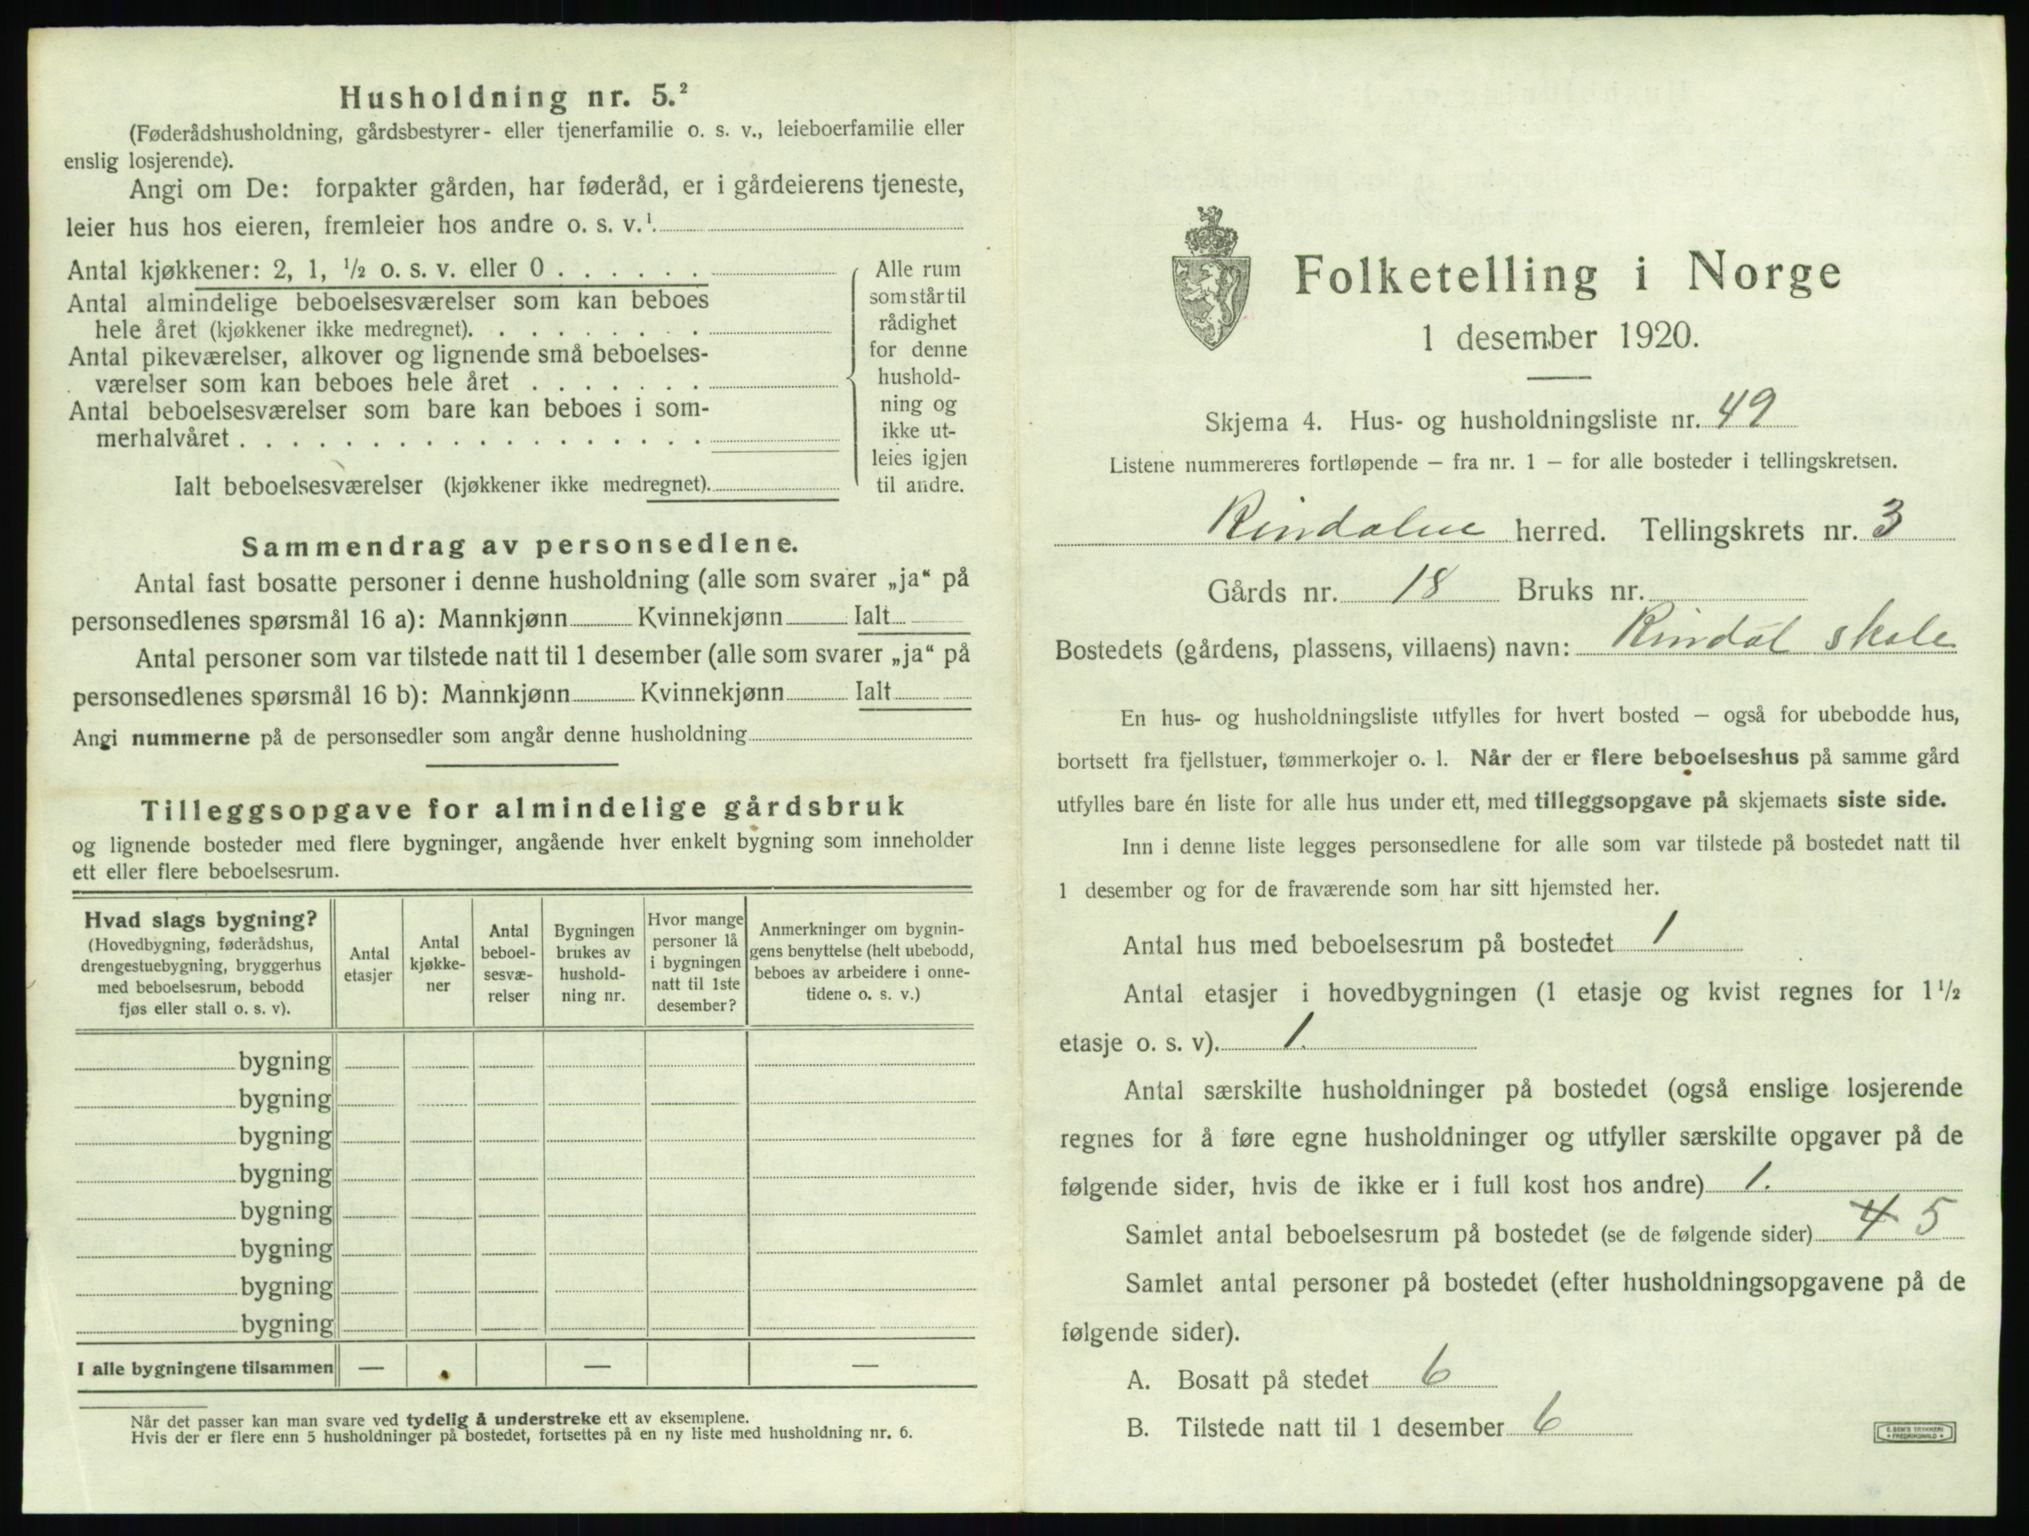 Husholdning nr. 5.²
(Føderådshusholdning, gårdsbestyrer- eller tjenerfamilie o. s. v., leieboerfamilie eller
enslig losjerende).
Angi om De: forpakter gården, har føderåd, er i gårdeierens tjeneste,
leier hus hos eieren, fremleier hos andre o. s. v.¹
Antal kjøkkener: 2, 1, ½ o. s. v. eller 0 . . . . . .
Antal almindelige beboelsesværelser som kan beboes
hele året (kjøkkener ikke medregnet). . . . . . . . .
Antal pikeværelser, alkover og lignende små beboelses-
værelser som kan beboes hele året . . . . . . .
Antal beboelsesværelser som bare kan beboes i som-
merhalvåret . . . . . . . . . . . . . . . . . .
Ialt beboelsesværelser (kjøkkener ikke medregnet).
Alle rum
som står til
rådighet
for denne
hushold-
ning og
ikke ut-
leies igjen
til andre.
Sammendrag av personsedlene.
Antal fast bosatte personer i denne husholdning (alle som svarer „ja“ på
personsedlenes spørsmål 16 a): Mannkjønn Kvinnekjønn Ialt
Antal personer som var tilstede natt til 1 desember (alle som svarer „ja“ på
personsedlenes spørsmål 16 b): Mannkjønn Kvinnekjønn Ialt
Angi nummerne på de personsedler som angår denne husholdning
Tilleggsopgave for almindelige gårdsbruk
og lignende bosteder med flere bygninger, angående hver enkelt bygning som inneholder
ett eller flere beboelsesrum.
Hvad slags bygning?
(Hovedbygning, føderådshus,
drengestuebygning, bryggerhus
med beboelsesrum, bebodd
fjøs eller stall o. s. v).
Antal
etasjer
Antal
kjøkke-
ner
Antal
beboel-
sesvæ-
relser
Bygningen
brukes av
hushold-
ning nr.
Hvor mange
personer lå
i bygningen
natt til 1ste
desember?
Anmerkninger om bygnin-
gens benyttelse (helt ubebodd,
beboes av arbeidere i onne-
tidene o. s. v.)
bygning
bygning
bygning
bygning
bygning
bygning
bygning
bygning
I alle bygningene tilsammen — — —
Når det passer kan man svare ved tydelig å understreke ett av eksemplene.
Hvis der er flere enn 5 husholdninger på bostedet, fortsettes på en ny liste med husholdning nr. 6.
Folketelling i Norge
1 desember 1920.
Skjema 4. Hus- og husholdningsliste nr. 49
Listene nummereres fortløpende – fra nr. 1 – for alle bosteder i tellingskretsen.
Rindalen herred. Tellingskrets nr. 3
Gårds nr. 18 Bruks nr.
Bostedets (gårdens, plassens, villaens) navn: Rindal skole
En hus- og husholdningsliste utfylles for hvert bosted – også for ubebodde hus,
bortsett fra fjellstuer, tømmerkojer o. l. Når der er flere beboelseshus på samme gård
utfylles bare én liste for alle hus under ett, med tilleggsopgave på skjemaets siste side.
Inn i denne liste legges personsedlene for alle som var tilstede på bostedet natt til
1 desember og for de fraværende som har sitt hjemsted her.
Antal hus med beboelsesrum på bostedet 1
Antal etasjer i hovedbygningen (1 etasje og kvist regnes for 1½
etasje o. s. v). 1.
Antal særskilte husholdninger på bostedet (også enslige losjerende
regnes for å føre egne husholdninger og utfyller særskilte opgaver på de
følgende sider, hvis de ikke er i full kost hos andre) 1.
Samlet antal beboelsesrum på bostedet (se de følgende sider) 4 5
Samlet antal personer på bostedet (efter husholdningsopgavene på de
følgende sider).
A. Bosatt på stedet 6
B. Tilstede natt til 1 desember 6
E. SEM'S TRYKKERI
FREDRIKSHALD